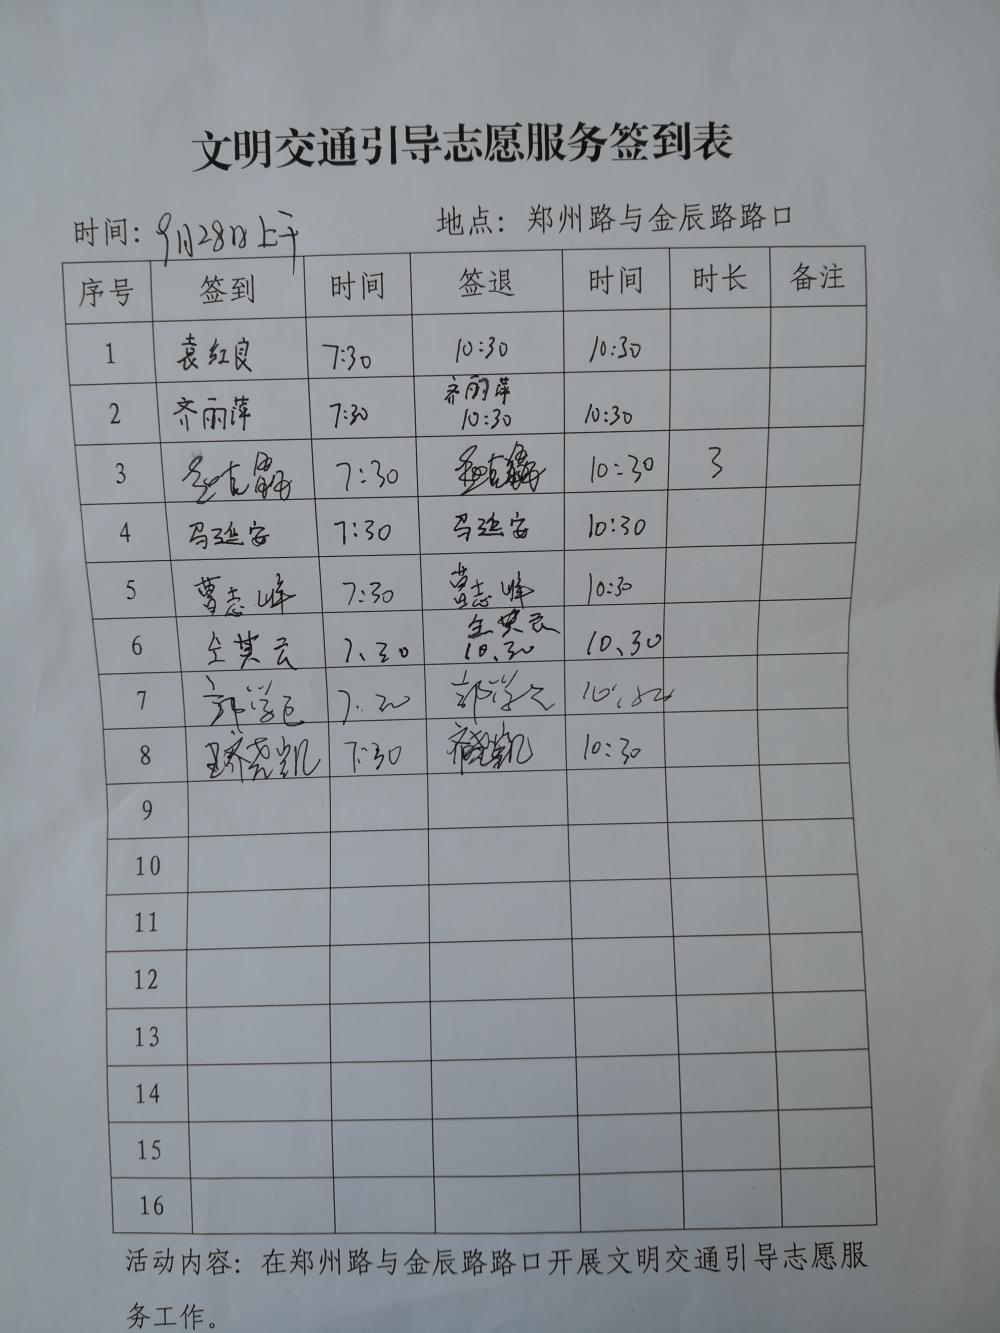 文明交通引导志愿服务签到表
时间：9月28日上午 地点：郑州路与金辰路路口
序号 签到 时间 签退 时间 时长 备注
1 袁红良 7:30 10:30 10:30
齐丽萍
2 齐丽萍 7:30 10:30 10:30
3 7:30 10:30 3
4 马延安 7:30 马延安 10:30
5 曹志峰 7:30 曹志峰 10:30
仝其云
6 仝其云 7.30 10.30 10.30
7 7.30
8 7:30 10:30
9
10
11
12
13
14
15
16
活动内容：在郑州路与金辰路路口开展文明交通引导志愿服
务工作。